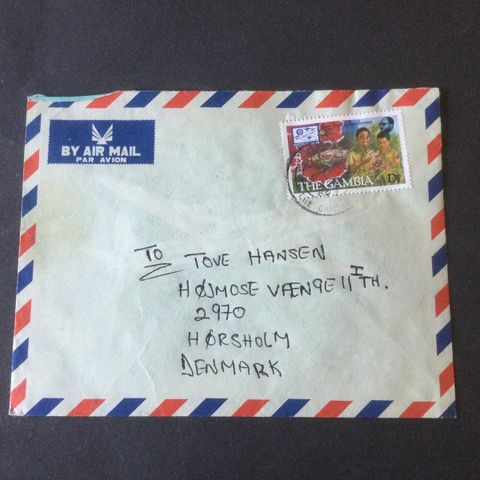 BY AIR MAIL
PAR AVION
THE GAMBIA D1
TO TOVE HANSEN
HØJMOSE VÆNGE 11 I TH.
2970
HØRSHOLM
DENMARK